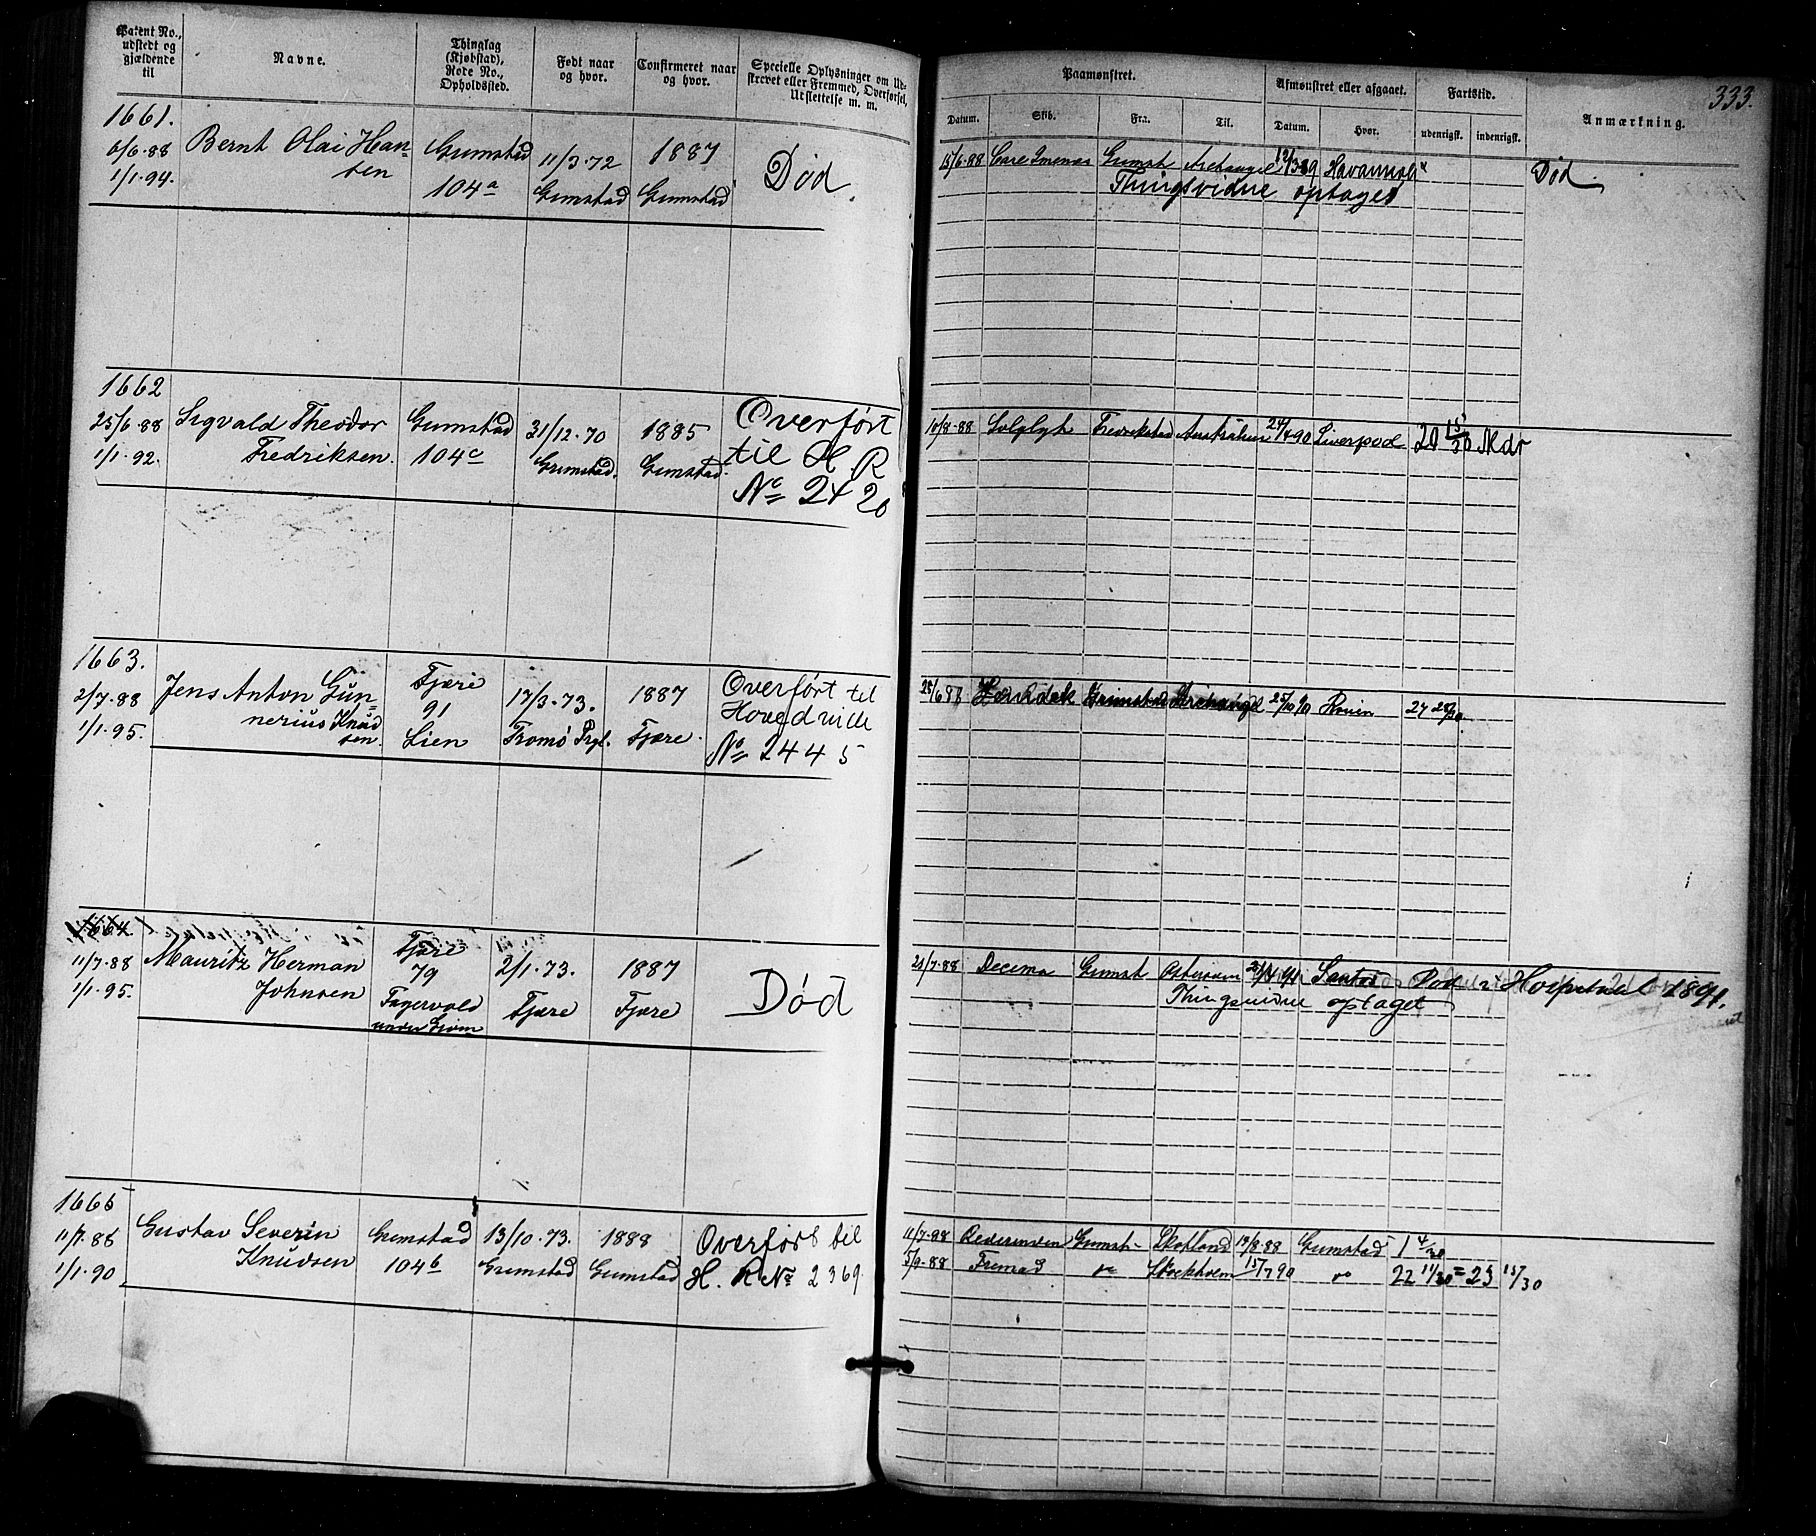 Patent No., udstedt og gjældende til
Navne.
Thinglag (Kjøbstad), Rode No., Opholdssted.
Født naar og hvor.
Confirmeret naar og hvor.
Specielle Oplysninger om Udskrevet eller Fremmed, Overførsel, Udslettelse m. m.
Paamønstret.
Afmønstret eller afgaaet.
Fartstid.
333.
Datum.
Skib.
Fra.
Til.
Datum.
Hvor.
udenrigsk.
indenrigsk.
Anmærkning.
1661.
6/6-88
1/1.94.
Bernt Olai Han-
sen
Grimstad
104a
11/3.72
Grimstad
1887
Grimstad
Død
15/6-88 Grimst Archangel Havanna
Thingsvidne optaget
Død
1662
25/6-88
1/1.92.
Sigvald Theodor
Fredriksen.
Grimstad
104c
31/12.70
Grimstad.
1885
Grimstad.
Overført
til H. R
No 2420
10/8-88 Solglyt Fredrikstad Australien 24/4 90 Liverpool 20 15/30 Mdr
1663.
2/7-88
1/1-95.
Jens Anton Gun-
nerius Knud
sen.
Fjære
91
Lien
17/3-73.
Tromø Prgl.
1887
Fjære.
Overført til
Hovedrulle
No 2445
28/6 88 Grimstad Archangel 25/10 90 27
1664.
11/7-88
1/1-95.
Mauritz Herman
Johnsen
Fjære
79
Fagervold
under
2/1.73.
Fjære
1887
Fjære
Død
21/7-88 Decima Grimst Santos Død i Hospital 1891.
Thingsvidne optaget
1665
11/7-88
1/1.90
Gustav Severin
Knudsen
Grimstad
104b
13/10.73.
Grimstad
1888
Grimstad
Overført til
H. R No 2369.
11/7-88 Grimst- Skotland 19/8-88 Grimstad 1 4/30
5/9-88 Fremad Stockholm 15/7 90 22 11/30 = 23 15/30